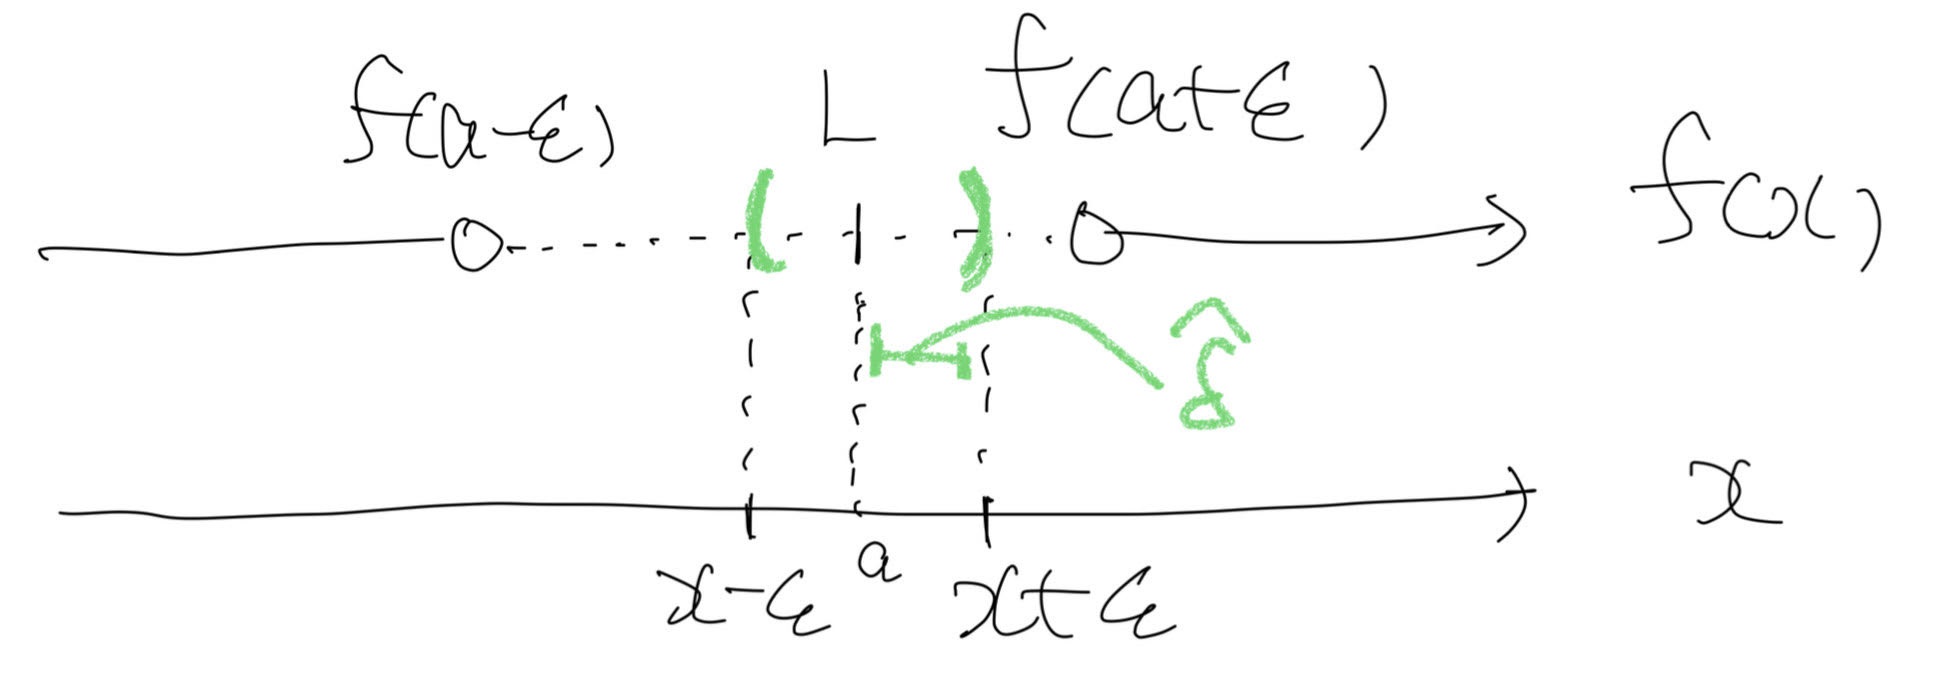 f(a-ε) L f(a+ε)
f(x)
δ̂
x
x-ε a x+ε